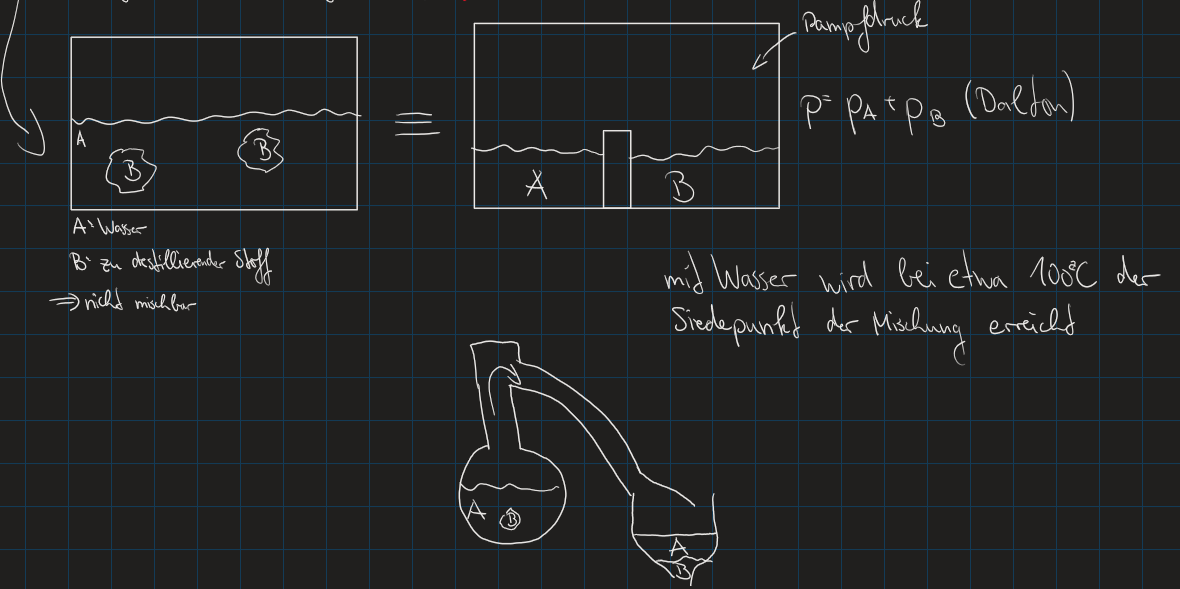 Dampfdruck
A
B
B
A
B
p = pA + pB (Dalton)
A: Wasser
B: zu destillierender Stoff
⇒ nicht mischbar
mit Wasser wird bei etwa 100°C der
Siedepunkt der Mischung erreicht
A
B
A
B